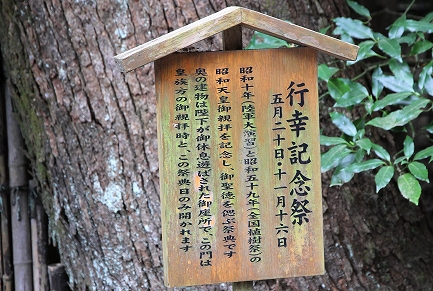 行幸記念祭
五月二十日・十一月十六日
昭和十年「陸軍大演習」と昭和五十九年「全国植樹祭」の
昭和天皇御親拝を記念し、御聖徳を偲ぶ祭典です
奥の建物は陛下が御休息遊ばされた御座所で、この門は
皇族方の御親拝時と、この祭典日のみ開かれます